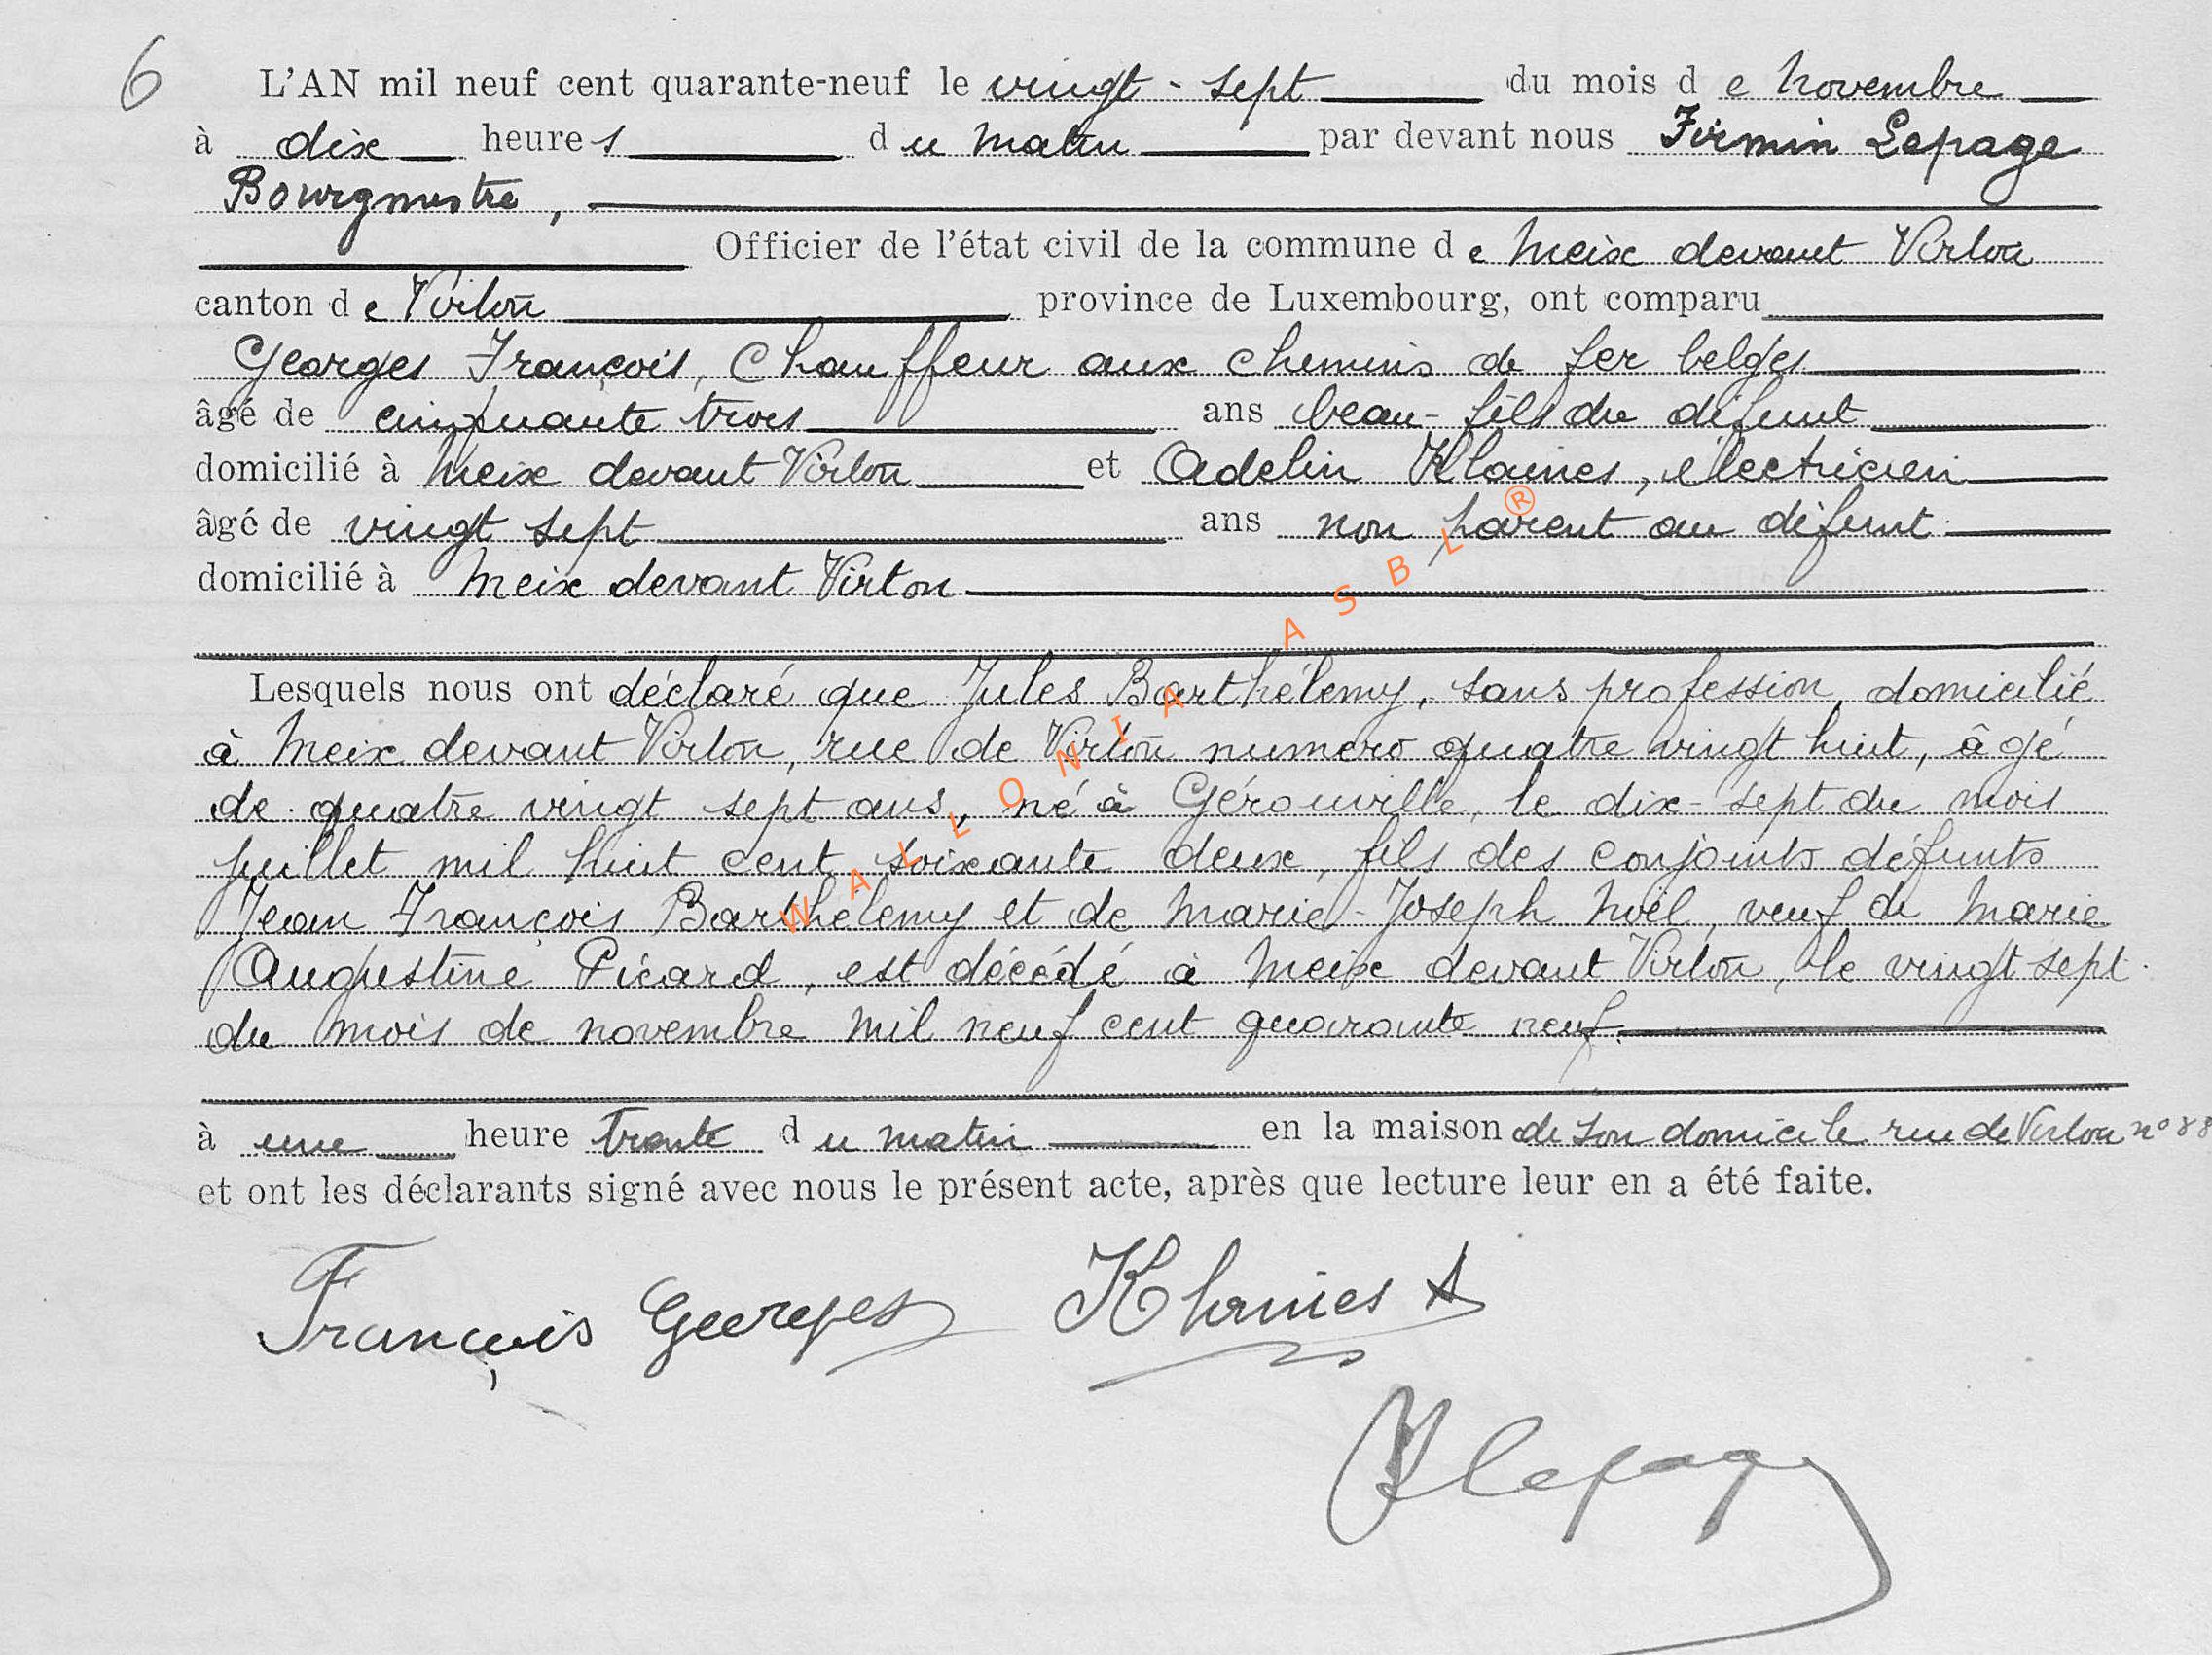 6
L'AN mil neuf cent quarante-neuf le vingt-sept du mois de Novembre
à dix heures du Matin par devant nous Firmin Lepage
Bourgmestre,
Officier de l'état civil de la commune de Meix devant Virton
canton de Virton province de Luxembourg, ont comparu
Georges François, Chauffeur aux chemins de fer belges
âgé de cinquante trois ans beau-fils du défunt
domicilié à Meix devant Virton et Adelin Klaines, électricien
âgé de vingt sept ans non parent au défunt.
domicilié à Meix devant Virton
Lesquels nous ont déclaré que Jules Barthélemy, sans profession, domicilié
à Meix devant Virton, rue de Virton numero quatre vingt huit, âgé
de quatre vingt sept ans, né à Gérouville, le dix-sept du mois
juillet mil huit cent soixante deux, fils des conjoints défunts
Jean François Barthélemy et de Marie-Joseph Noël, veuf de Marie
Augustine Picard, est décédé à Meix devant Virton, le vingt sept
du mois de novembre mil neuf cent quarante neuf.
à une heure trente du matin en la maison de son domicile rue de Virton n° 88
et ont les déclarants signé avec nous le présent acte, après que lecture leur en a été faite.
François Georges Klaines A
F Lepage
WALLONIA ASBL ®